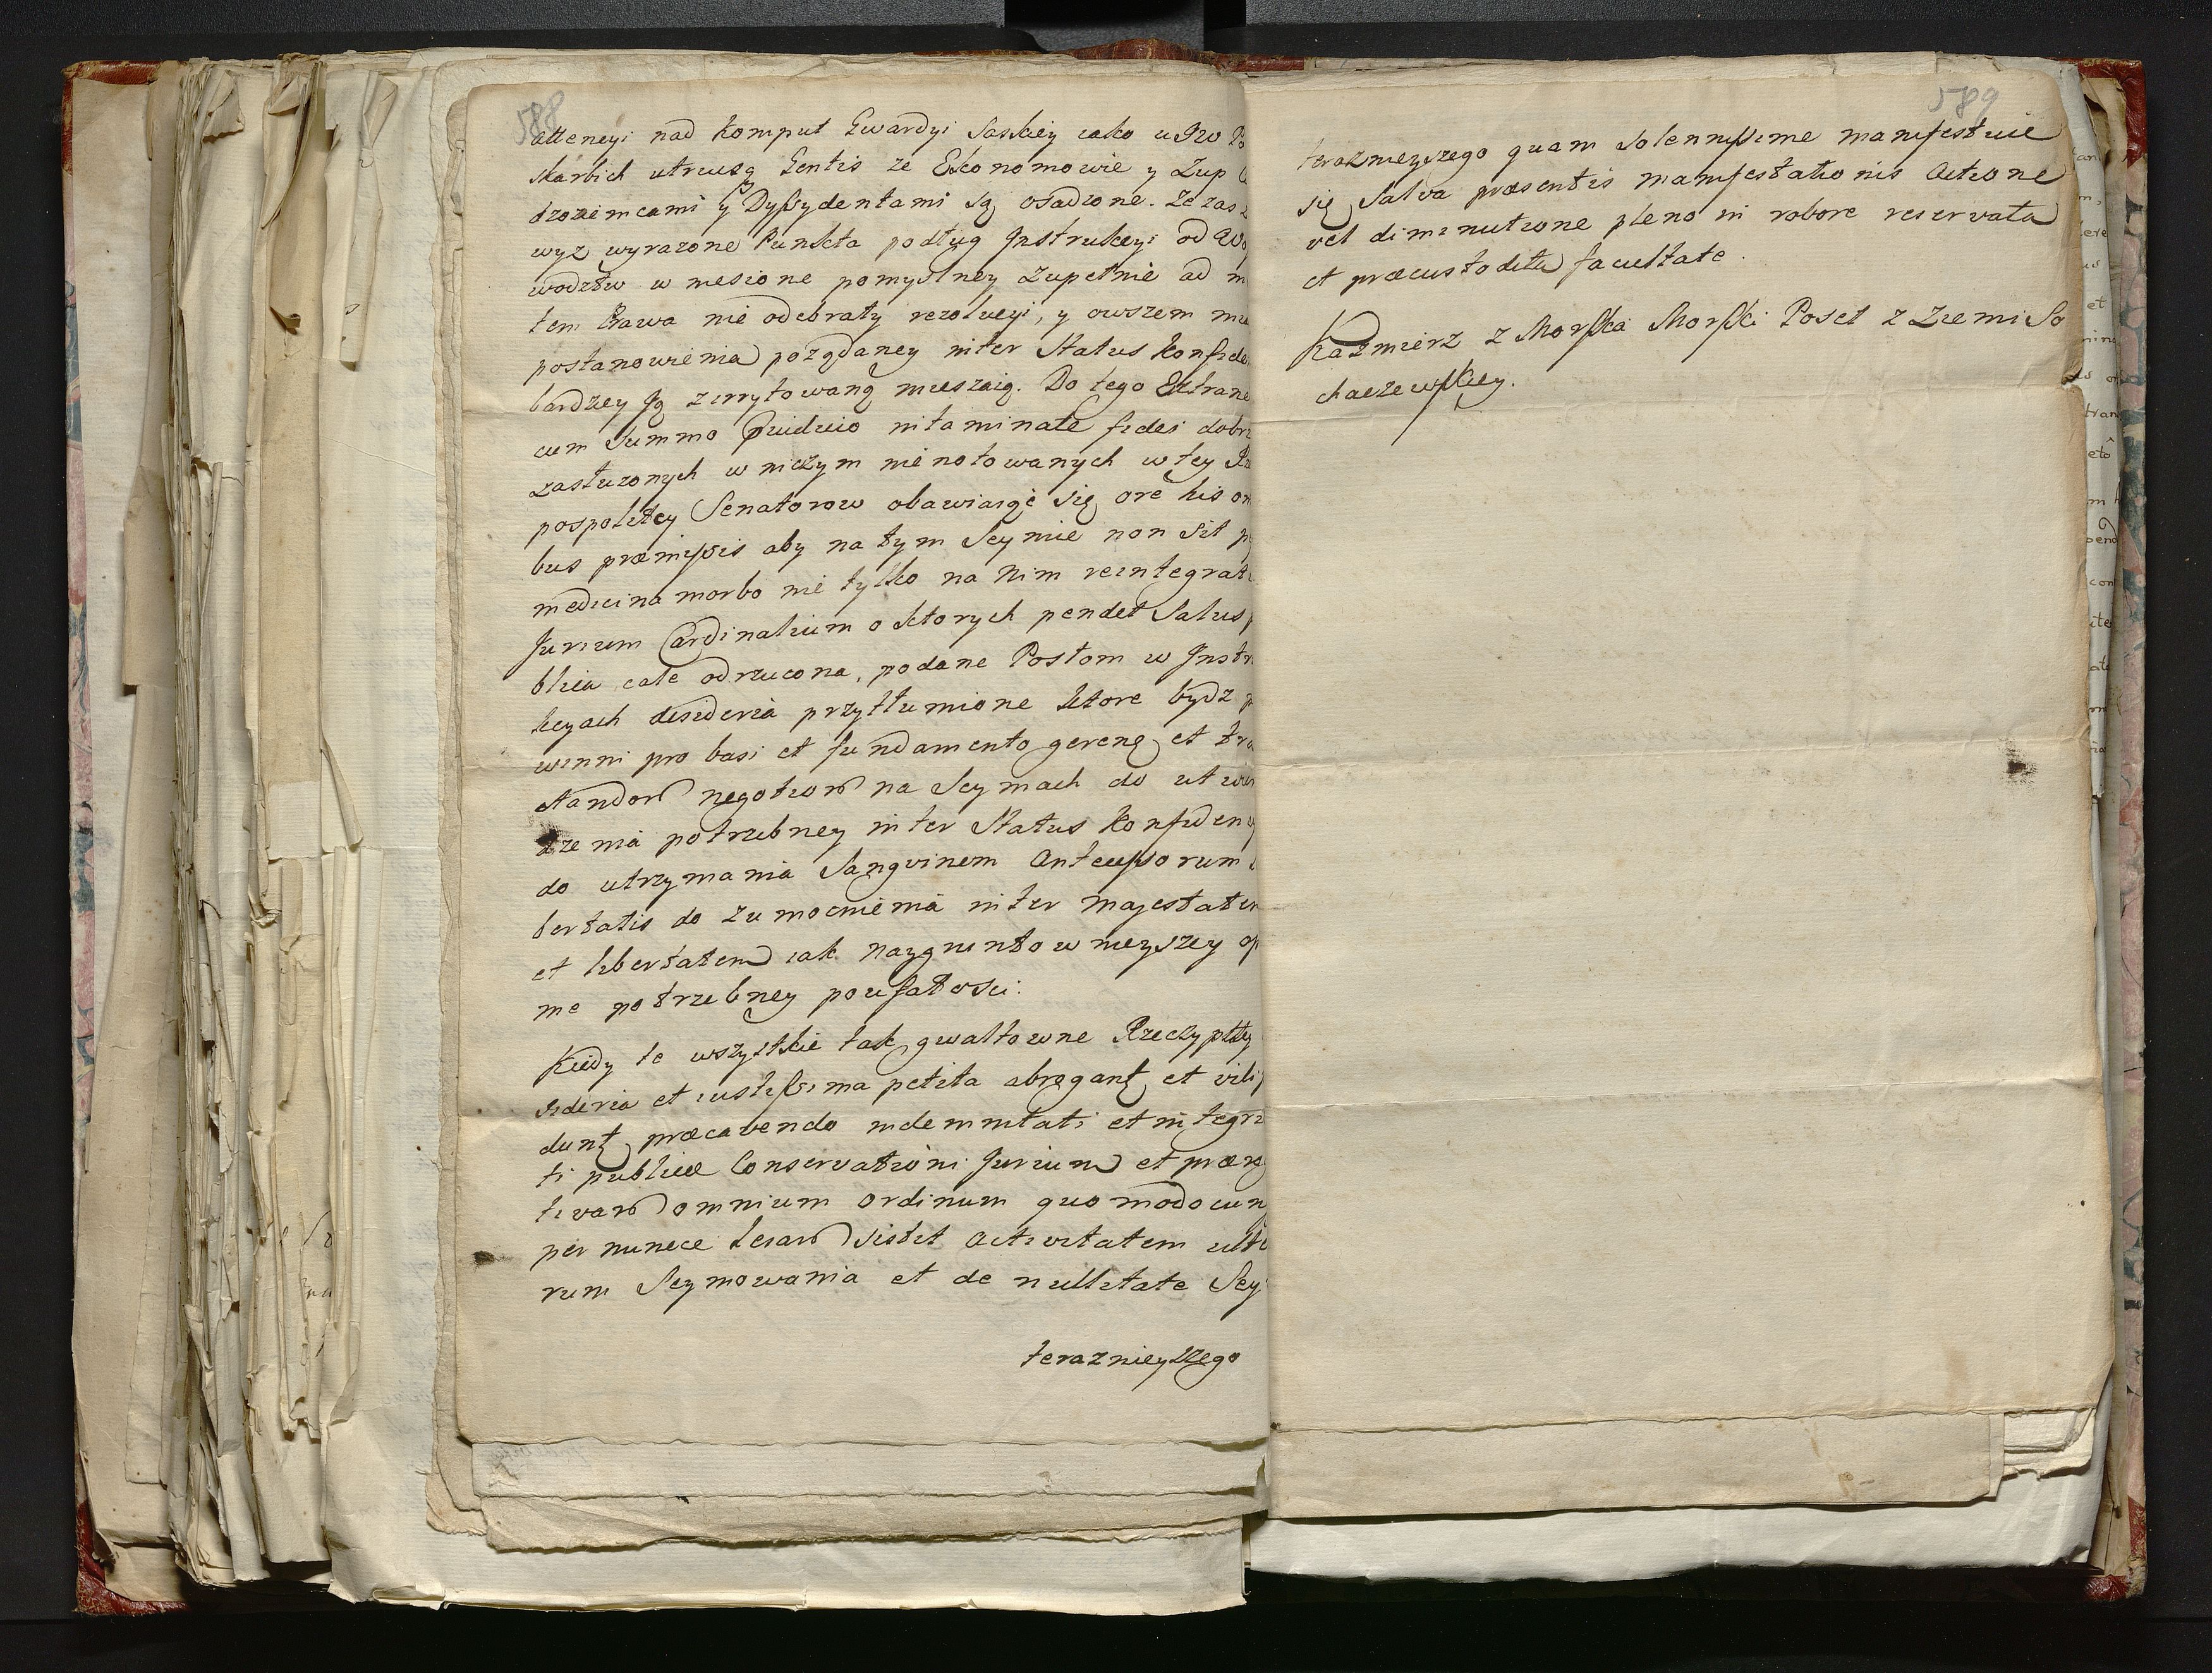 588
attencyi nad Komput Gwardyi Saskiey iako u
skarbich utriusq Gentis ze Ekonomowie y Zup
dzoziemcami y Dyssydentami są osadzone. Ze zas
wyz wyrazone Punkta podług Instrukcyi od
wodztw w niesione pomyslney zupełnie ad
tem Prawa nie odebrały rezolucyi, y owszem
postanowienia pozgdaney inter Status Konfide
bardziey Ią zirrytowaną mieszaią. Do tego Extrane
cum Summo fidei dobrz
zasłuzonych w niczym nie notowanych w tey
pospolitey Senatorow obawiaiąc się ore his om
bus præmissis aby na tym Seymie non sit
medicina morbo nie tylko na Nim reintegrati
Jurium Cardinalium o ktorych pendet Salus
blica cale odrzucona, podane Posłom w Instr
kcyach desideria przytłumione ktore bydz
winni pro basi et fundamento gereng et tra
ctandor negotior na Seymach do utwier
dzenia potrzebney inter Status Konfiden
do utrzymania Sangvinem Antecessorum
bertatis do zumocnienia inter Majestatem
et libertatem iak naygruntownieyszey op
me potrzebney poufałosci.
Kiedy te wszystkie tak gwałtowne Rzeczyptey
sideria et iustissima petita abrogant et vili
dunt præcavendo indemnitati et integri
ti publicæ Conservationi Jurium et præro
tivar omnium Ordinum quomodocunq
per nunece lesar sistit Activitatem ulte
rum Seymowania et de nullitate Sey
teraznieyszego
589
teraznieyszego quam Solennissime manifestuie
się Salva præsentis manifestationis Actione
vel diminutione pleno in robore reservata
et præcustodita facultate.
Kazmierz z Morska Morski Poseł z Ziemi So
chaczewskiey.